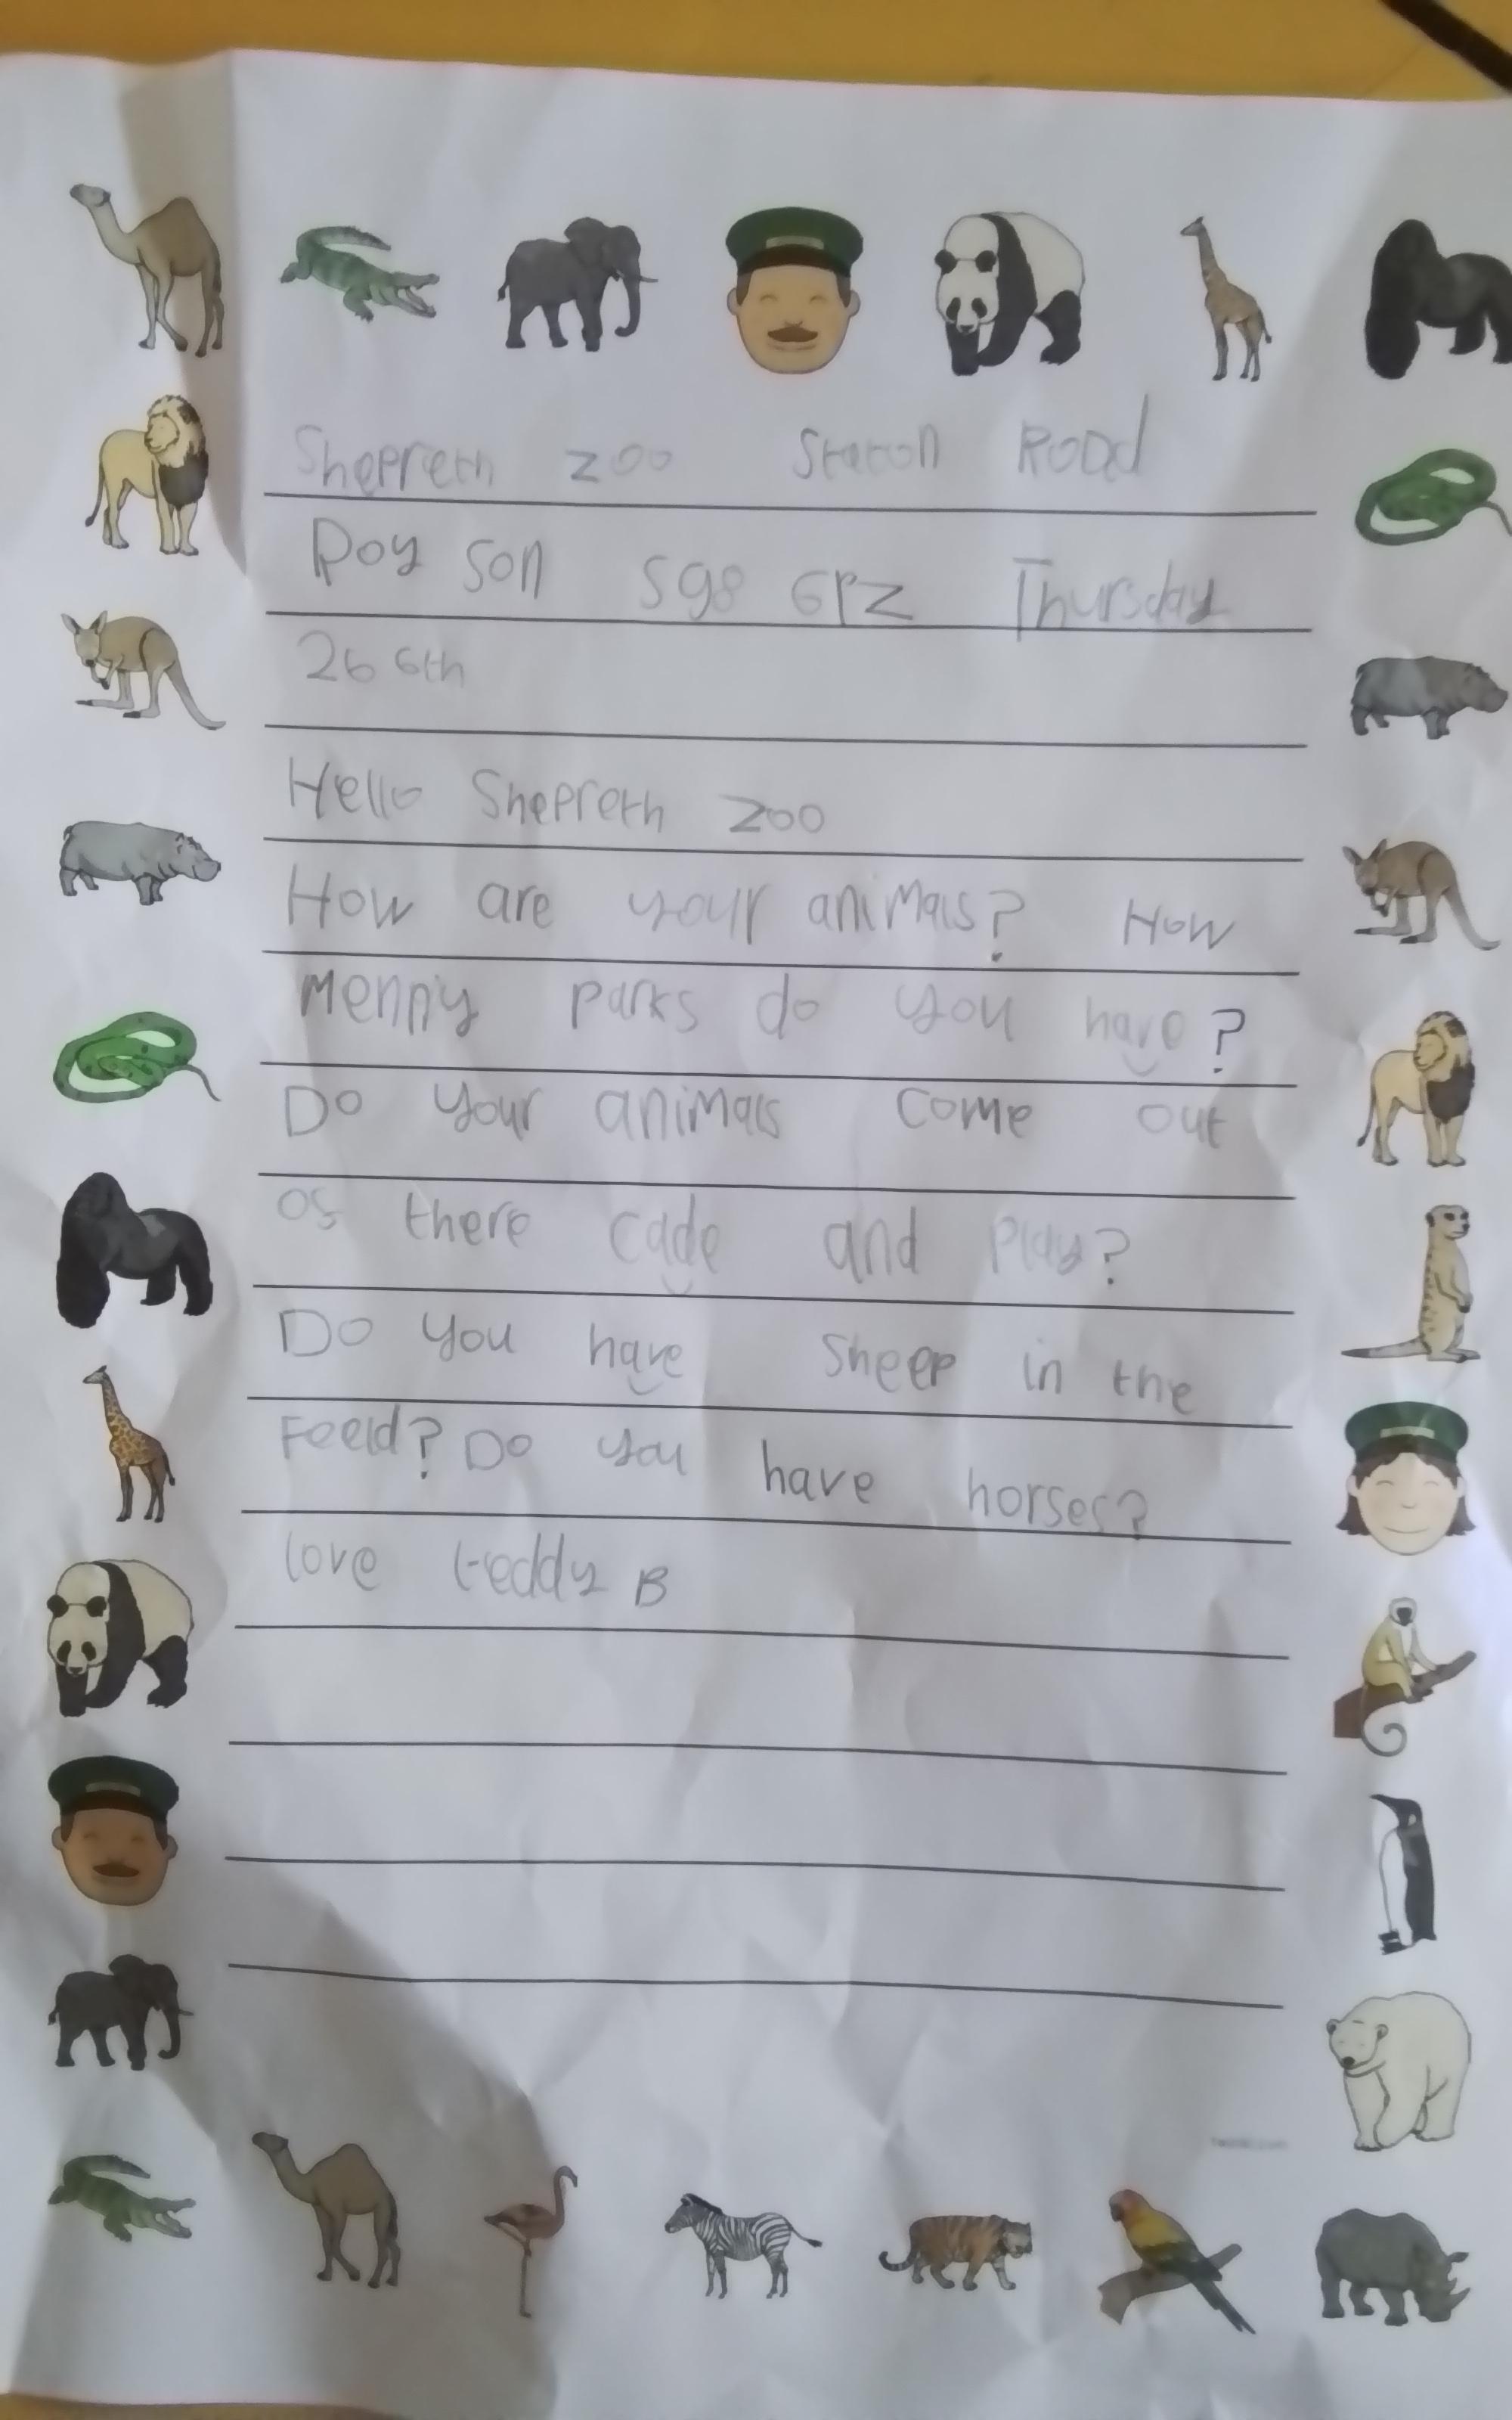 Shepreth zoo Staton Road
Roy son sg8 6PZ Thursday
26 6th
Hello Shepreth zoo
How are your animals? How
menny parks do you have?
Do your animals come out
os there cade and play?
Do you have sheep in the
Feeld? Do you have horses?
love teddy B